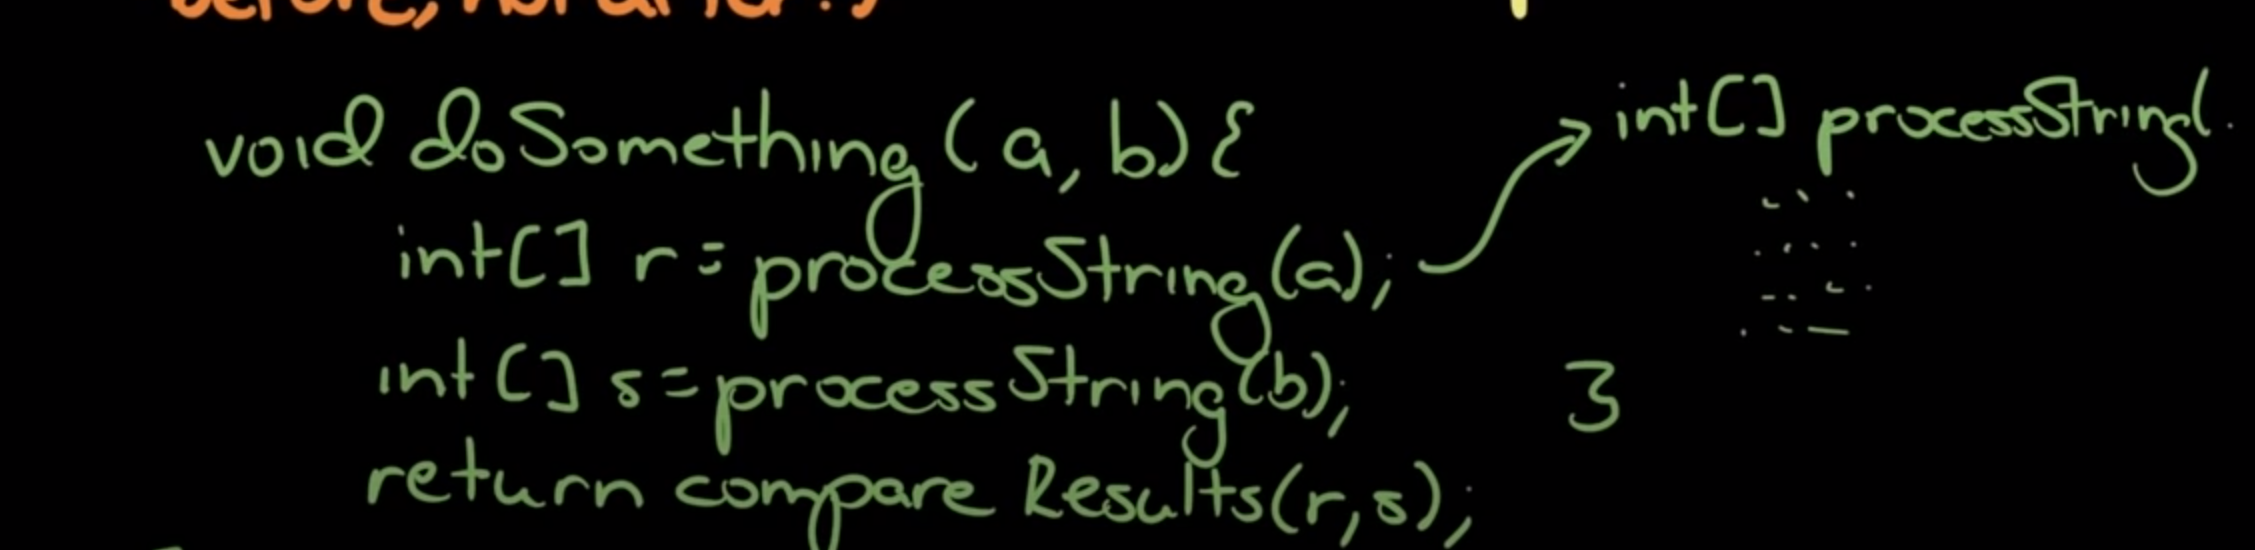 before, not after!)
void doSomething (a, b) {
int[] r = processString(a);
int[] s = processString(b);
return compare Results(r,s);
int[] processString(
}